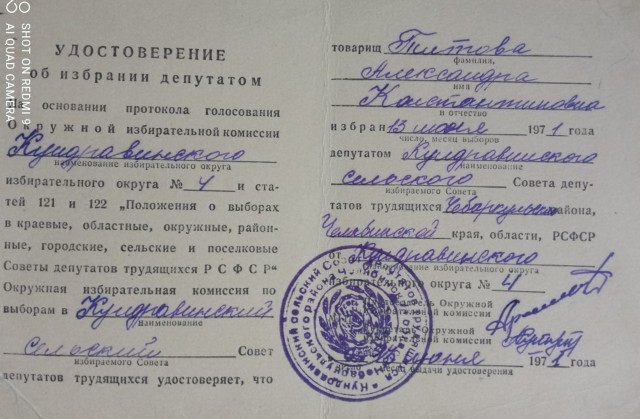 УДОСТОВЕРЕНИЕ
об избрании депутатом
На основании протокола голосования
Окружной избирательной комиссии
Кундравинского
наименование избирательного округа
избирательного округа № 4 и ста-
тей 121 и 122 „Положения о выборах
в краевые, областные, окружные, район-
ные, городские, сельские и поселковые
Советы депутатов трудящихся РСФСР"
Окружная избирательная комиссия по
выборам в Кундравинский
наименование
сельский Совет
избираемого Совета
депутатов трудящихся удостоверяет, что
товарищ Титова
фамилия,
Александра
имя
Константиновна
и отчество
избран 13 июня 1971 года
число, месяц выборов
депутатом Кундравинского
наименование
сельского Совета депу-
избираемого Совета
татов трудящихся Чебаркульского района,
Челябинской края, области, РСФСР
от Кундравинского
наименование избирательного округа
избирательного округа № 4
Председатель Окружной
избирательной комиссии
Секретарь Окружной
избирательной комиссии
15 июня 1971 года
место выдачи удостоверения
SHOT ON REDMI 9
AI QUAD CAMERA